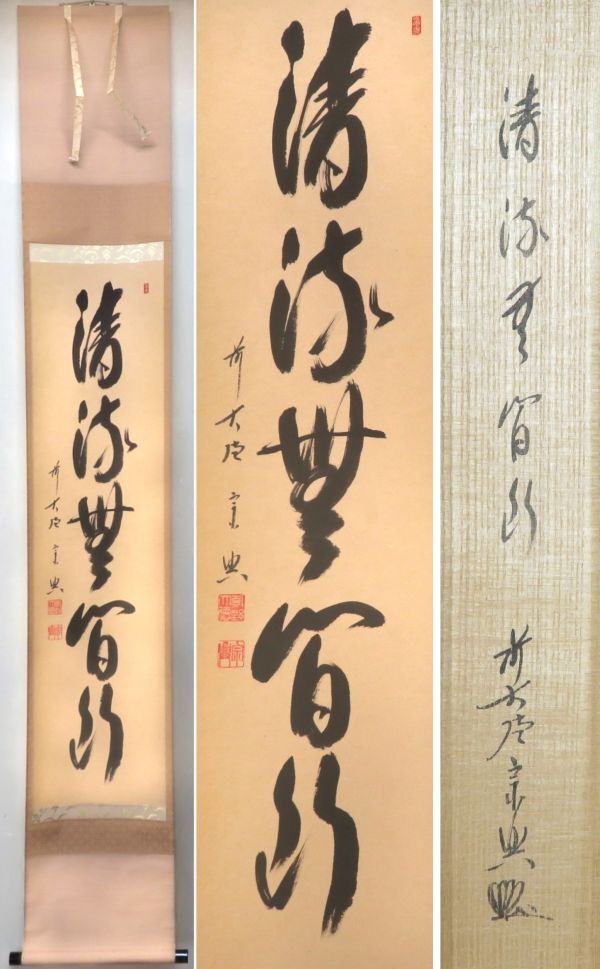 清流無間断
前大徳 宗典
清流無間断
前大徳 宗典
清流無間断
前大徳宗典